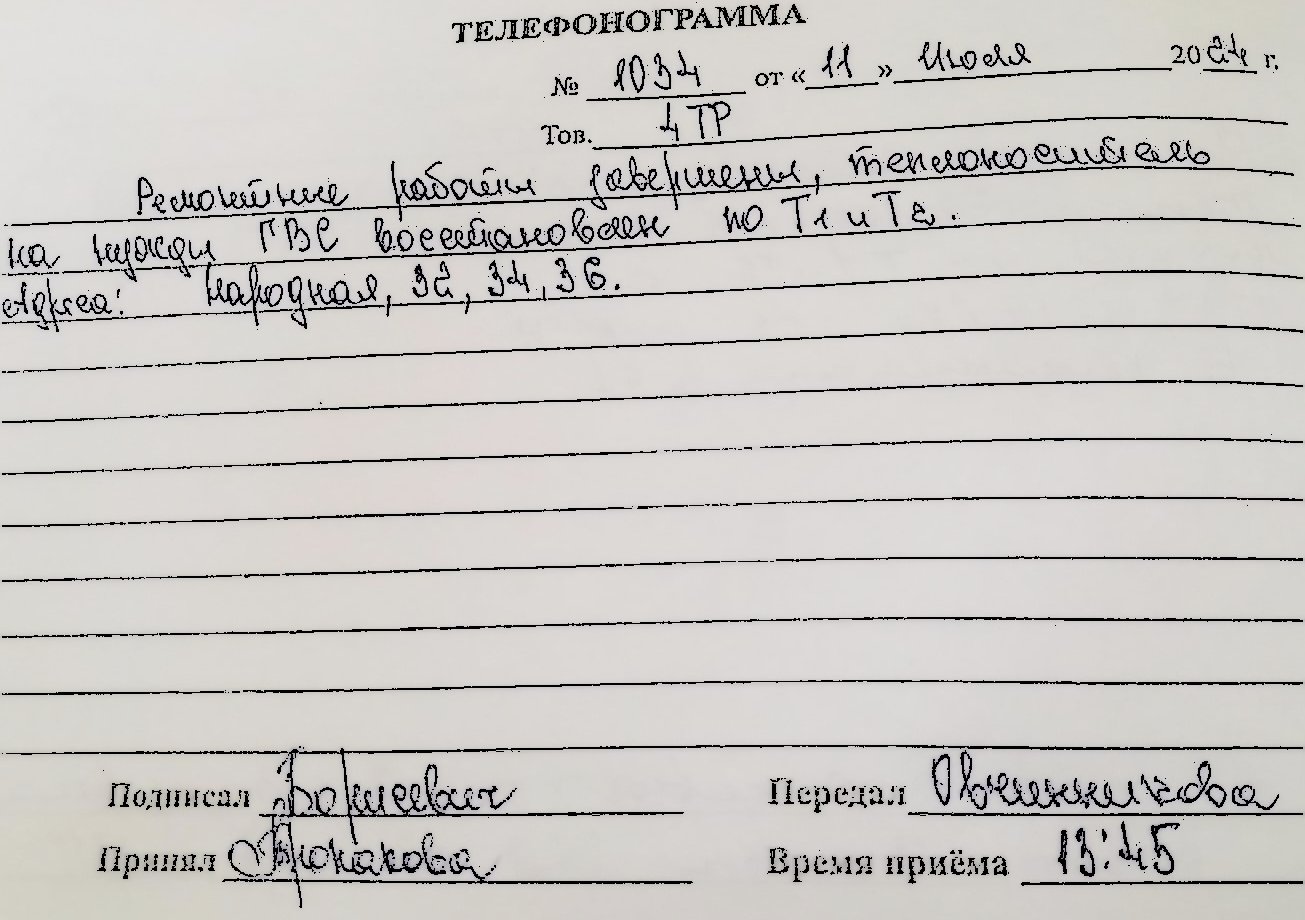 ТЕЛЕФОНОГРАММА
№ 1034 от «11» Июля 2024 г.
Тов. 4 ТР
Ремонтные работы завершены, теплоноситель
на нужды ГВС восстановлен по Т1 и Т2.
Адреса: Народная, 32, 34, 36.
Подписал Передал Овчинникова
Принял Время приёма 13:45